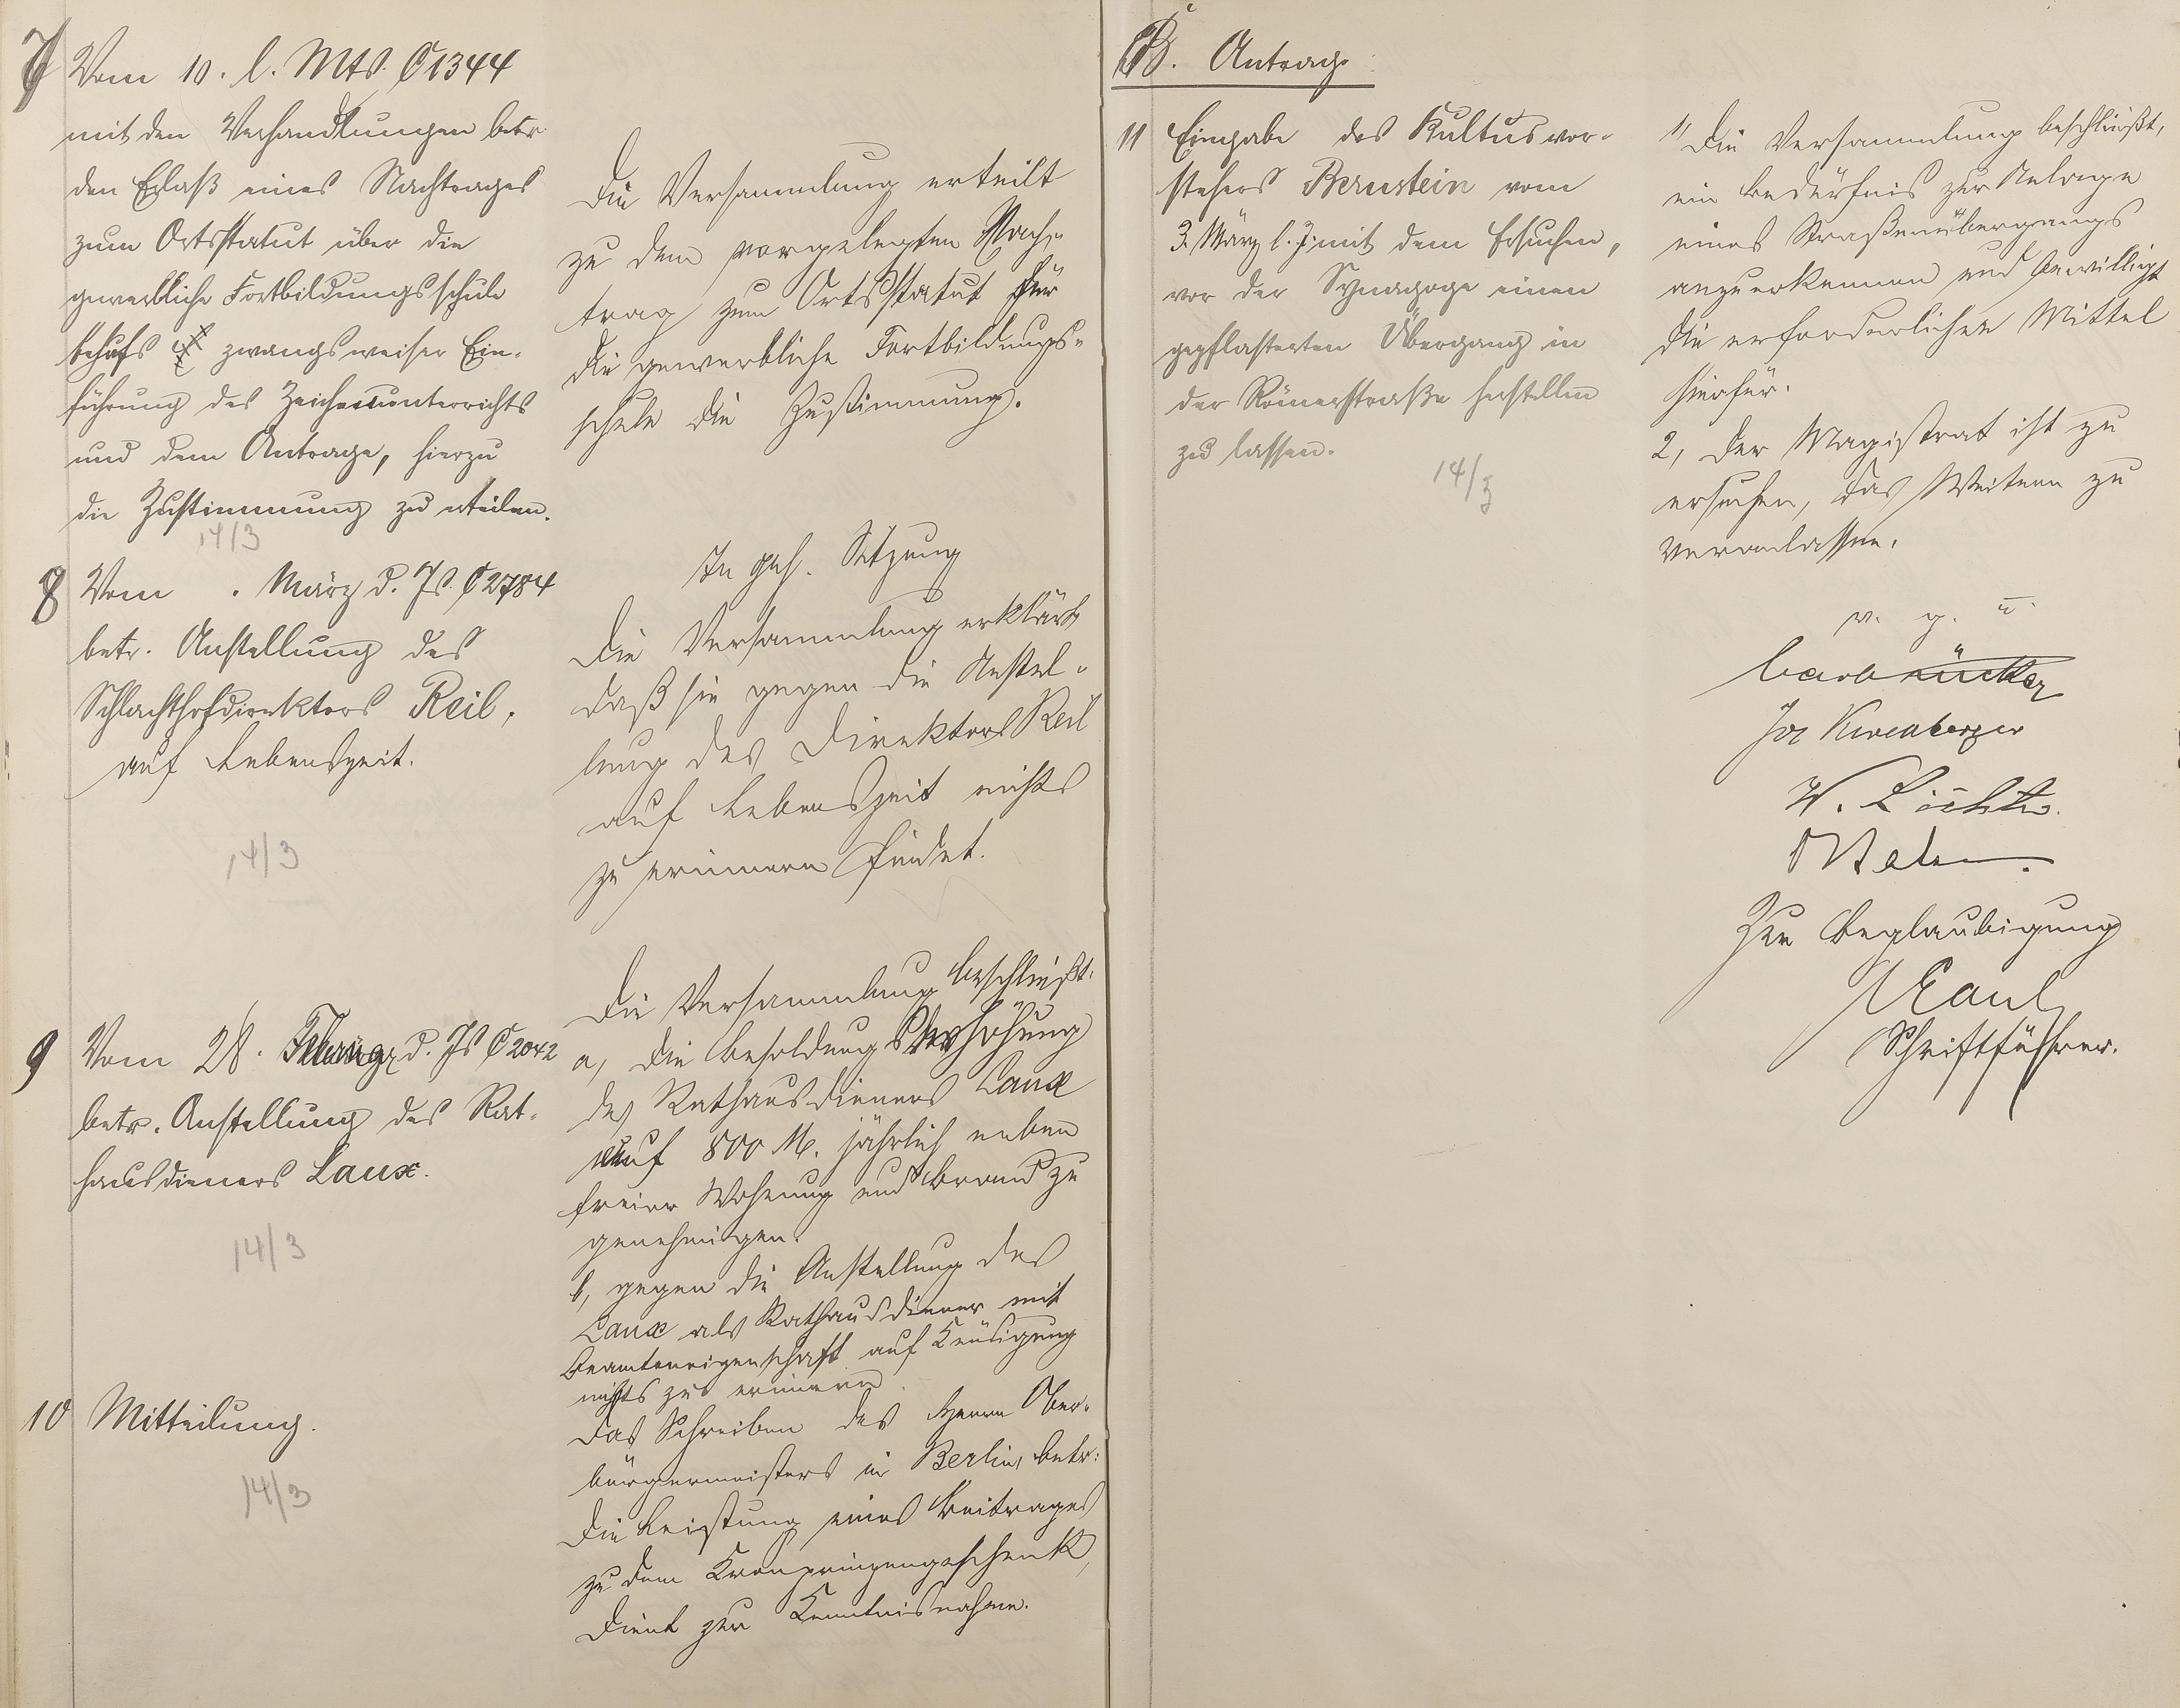 7 Vom 10. l. Mts. C 1344
mit den Verhandlungen betr.
den Erlaß eines Nachtrages
zum Ortsstatut über die
gewerbliche Fortbildungsschule
behufs zwangsweiser Ein-
führung des Zeichenunterrichts
und dem Antrage, hierzu
die Zustimmung zu erteilen.
14/3
Die Versammlung erteilt
zu dem vorgelegten Nach-
trag zum Ortsstatut für
die gewerbliche Fortbildungs-
schule die Zustimmung.
8 Vom . März d. Js. C 2784
betr. Anstellung des
Schlachthofdirektors Reil,
auf Lebenszeit.
14/3
In geh. Sitzung
Die Versammlung erklärt
daß sie gegen die Anstel-
lung des Direktors Reil
auf Lebenszeit nichts
zu erinnern findet.
9 Vom 28. Februar d. Js C 2042
betr. Anstellung des Rat-
hausdieners Laux.
14/3
Die Versammlung beschließt:
a, die Besoldungserhöhung
des Rathausdieners Laux
auf 800 M. jährlich neben
freier Wohnung und Brand zu
genehmigen.
b, gegen die Anstellung des
Laux als Rathausdiener mit
Beamteneigenschaft auf Kündigung
nichts zu erinnern.
10 Mitteilung.
14/3
Das Schreiben des Herrn Ober-
bürgermeisters in Berlin, betr:
die Leistung eines Beitrages
zu dem Kronprinzengeschenk,
dient zur Kenntnisnahme.
B. Antrag:
11 Eingabe des Kultusvor-
stehers Bernstein vom
3. März l. J. mit dem Ersuchen,
vor der Synagoge einen
gepflasterten Übergang in
der Römerstraße herstellen
zu lassen.
14/3
1, Die Versammlung beschließt,
ein Bedürfnis zur Anlage
eines Straßenübergangs
anzuerkennen und bewilligt
die erforderlichen Mittel
hierfür.
2, Der Magistrat ist zu
ersuchen, das Weitere zu
veranlassen.
v. g. u.
Jos Kirchberger
Zur Beglaubigung
Schriftführer.